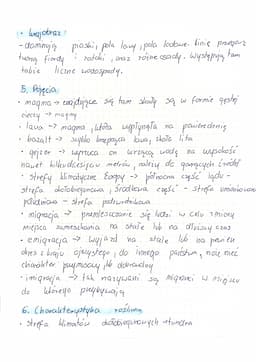 • krajobraz:
- dominują piaski, pola lawy, pola lodowe. Linię przegową
tworzą fiordy i zatoki, oraz różne osady. Występują tam
także liczne wodospady.
5. Pojęcia
• magma → znajdujące się tam skały są w formie gęstej
cieczy → magmy
• lawa → magma, która wypłynęła na powierzchnię
• bazalt → szybko krzepnąca lawa, skała lita
• gejzer → wyrzuca on wrzącą wodę na wysokość
nawet kilkudziesięciu metrów, należy do gorących źródeł
• strefy klimatyczne Europy → północna część lądu -
strefa okołobiegunowa, środkowa część - strefa umiarkowana
południowa - strefa podzwrotnikowa
• migracja → przemieszczanie się ludzi w celu zmiany
miejsca zamieszkania na stałe lub na dłuższy czas
• emigracja → wyjazd na stałe lub na pewien
okres z kraju ojczystego, do innego państwa, może mieć
charakter przymusowy lub dobrowolny
• imigracja → tak nazywani są migranci w miejscu
do którego przybywają
6. Charakterystyka roślinna
• strefa klimatów okołobiegunowych - tundra